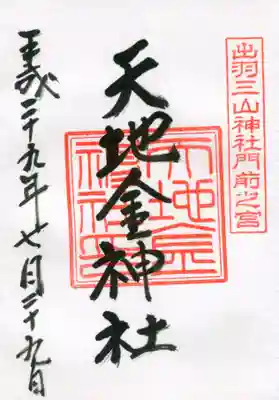 出羽三山神社門前之宮
天地金神社
天地金神社印
平成二十九年七月二十九日